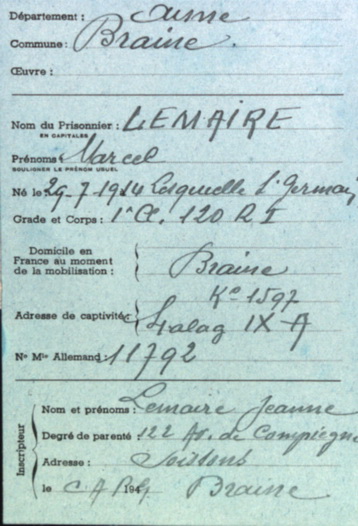 Département : Aisne
Commune : Braine.
Œuvre :
Nom du Prisonnier : LEMAIRE
EN CAPITALES
Prénoms Marcel
SOULIGNER LE PRÉNOM USUEL
Né le 29-7-1914 Lesquielle St Germai
Grade et Corps : 1e Cl. 120 R I
Domicile en
France au moment
de la mobilisation :
Braine
Ko 1597
Adresse de captivité : Stalag IX A
No Mle Allemand : 11792
Inscripteur
Nom et prénoms : Lemaire Jeanne
Degré de parenté : 122 Av. de Compiègne
Adresse : Soissons
le C A P G 194 Braine